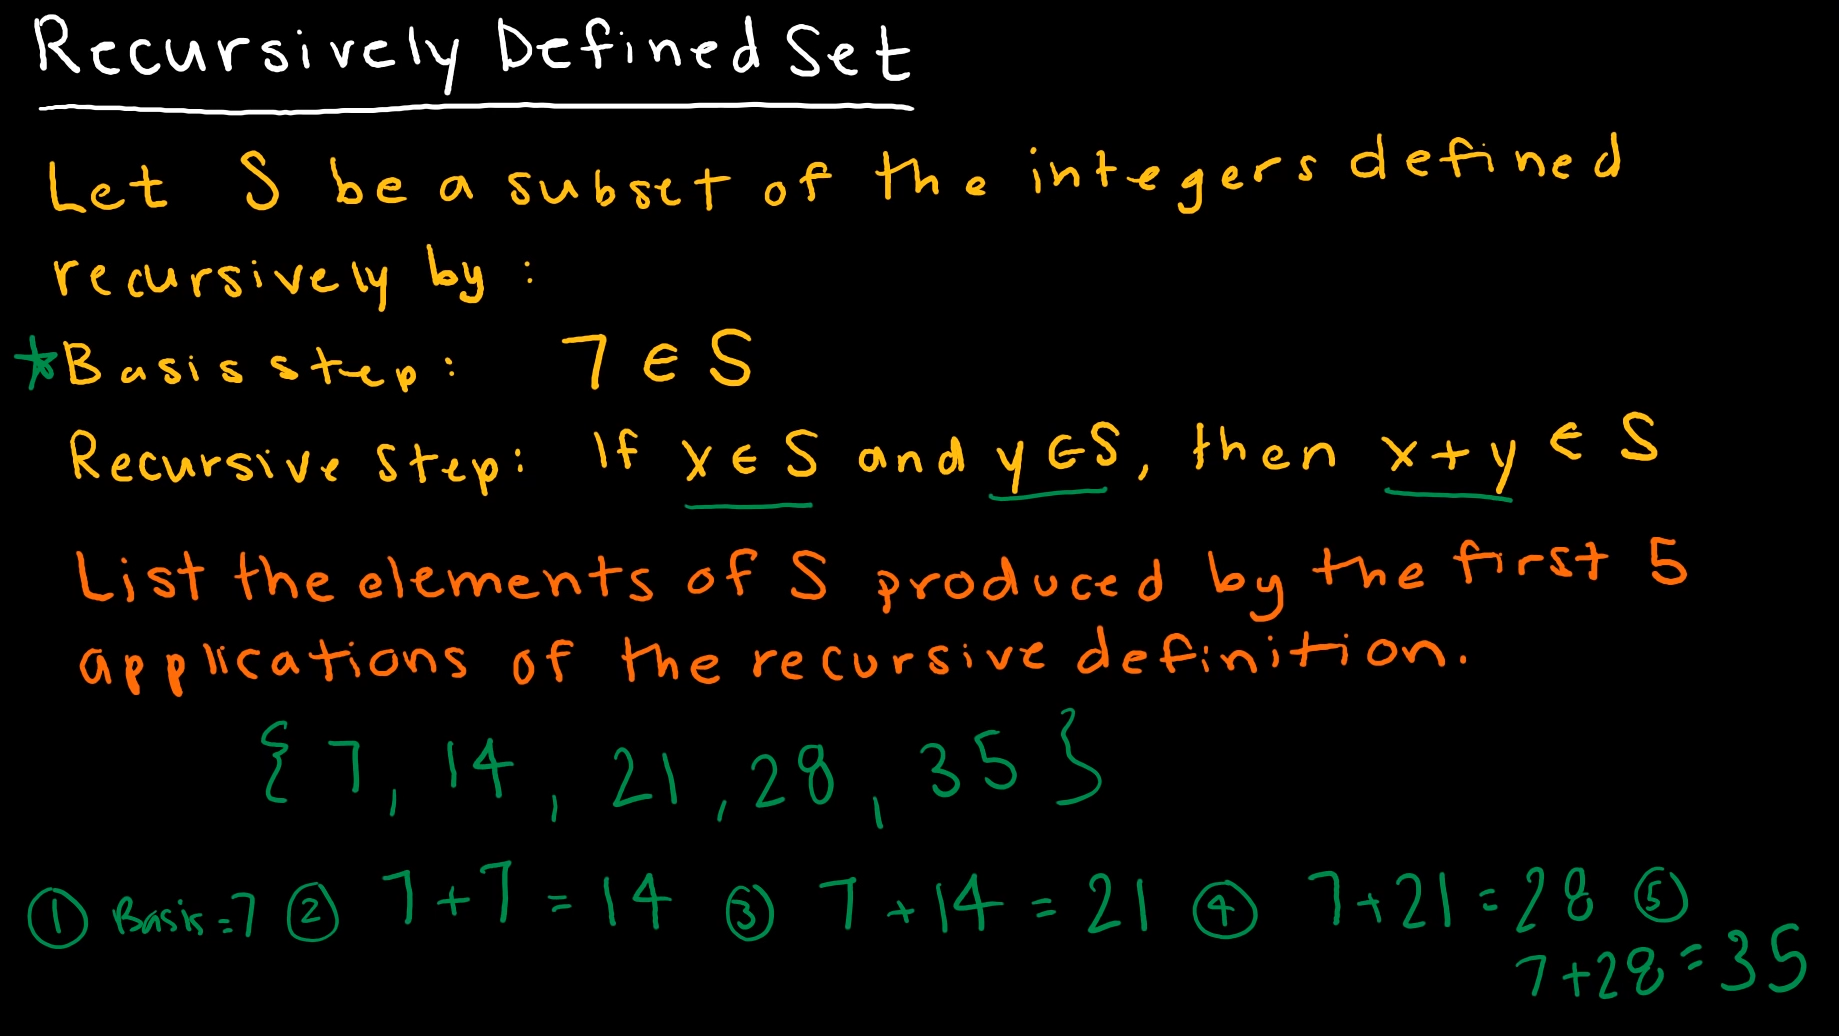 Recursively Defined Set
Let S be a subset of the integers defined
recursively by:
*Basis step: 7 ∈ S
Recursive Step: If x ∈ S and y ∈ S, then x+y ∈ S
List the elements of S produced by the first 5
applications of the recursive definition.
{7, 14, 21, 28, 35}
① Basis=7 ② 7+7=14 ③ 7+14=21 ④ 7+21=28 ⑤
7+28=35